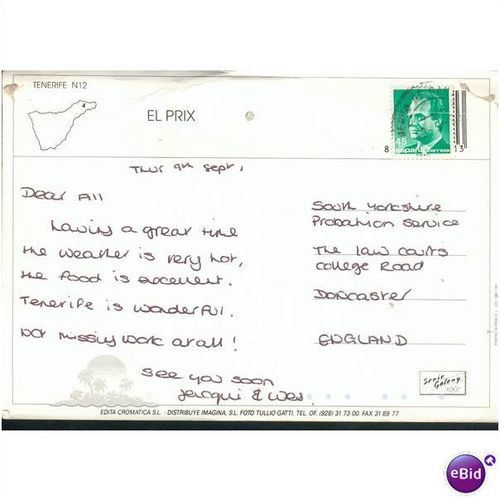 TENERIFE N12
4
EL PRIX
45
ESPAÑA correos
8 13
Thur 9th Sept,
Dear All
having a great time
the weather is very hot,
the food is excellent.
Tenerife is wonderful.
not missing work at all!
See you soon
Jacqui & Wes.
South Yorkshire
Probation Service
The law courts
college Road
Doncaster
ENGLAND
Serie Galery
EDITA CROMATICA S.L. - DISTRIBUYE IMAGINA, S.L. FOTO TULLIO GATTI, TEL. OF. (928) 31 73 00. FAX 31 89 77
eBid